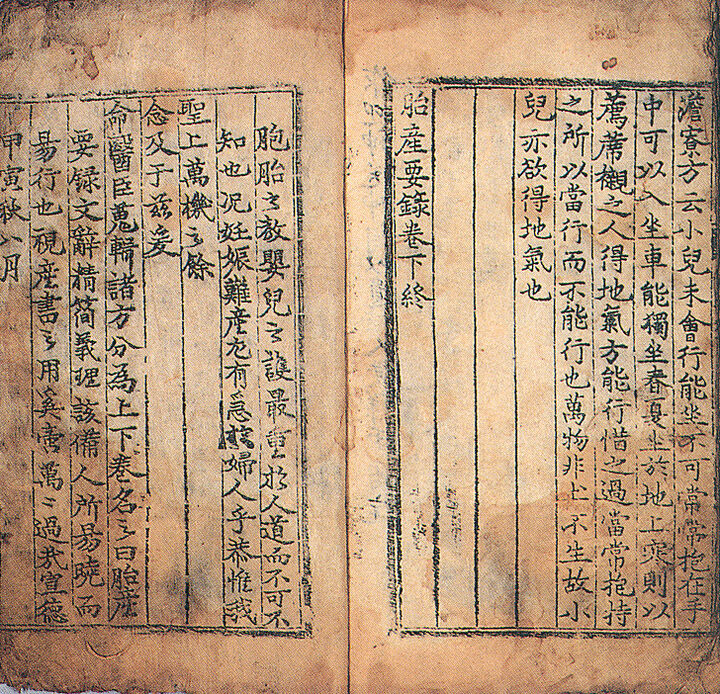 澹寮方云小兒未會行能坐不可常常抱在手
中可以入坐車能獨坐春夏坐於地上寒則以
薦蓆襯之人得地氣方能行惜之過當常抱持
之所以當行而不能行也萬物非土不生故小
兒亦欲得地氣也
胎産要錄卷下終
胞胎之敎嬰兒之護最重於人道而不可不
知也况妊娠難産尤有急於婦人乎恭惟我
聖上萬機之餘
念及于玆爰
命醫臣蒐輯諸方分爲上下卷名之曰胎産
要録文辭精簡義理該備人所易曉而
易行也視産書之用奚啻萬〻過哉宣德
甲寅秋八月